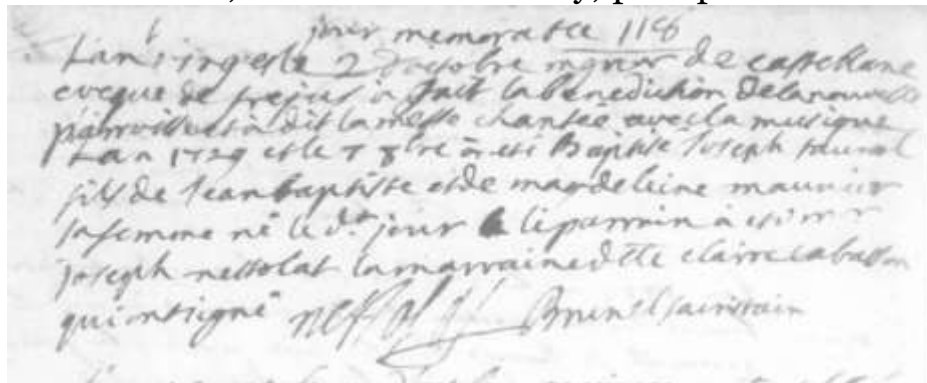 jour memorable 1158
Lan 1729 et le 2 doctobre mgneur de castellane
eveque de frejus a fait la benediction de la nouvelle
parroisse et à dit la messe chantée avec la musique
Lan 1729 et le 7 8bre à eté Baptisé Joseph
fils de Jean baptiste et de magdeleine maunier
sa femme né le dt jour le parrain à eté mr
joseph la marraine dlle claire cabasson
qui ont signé Brunel sacristain